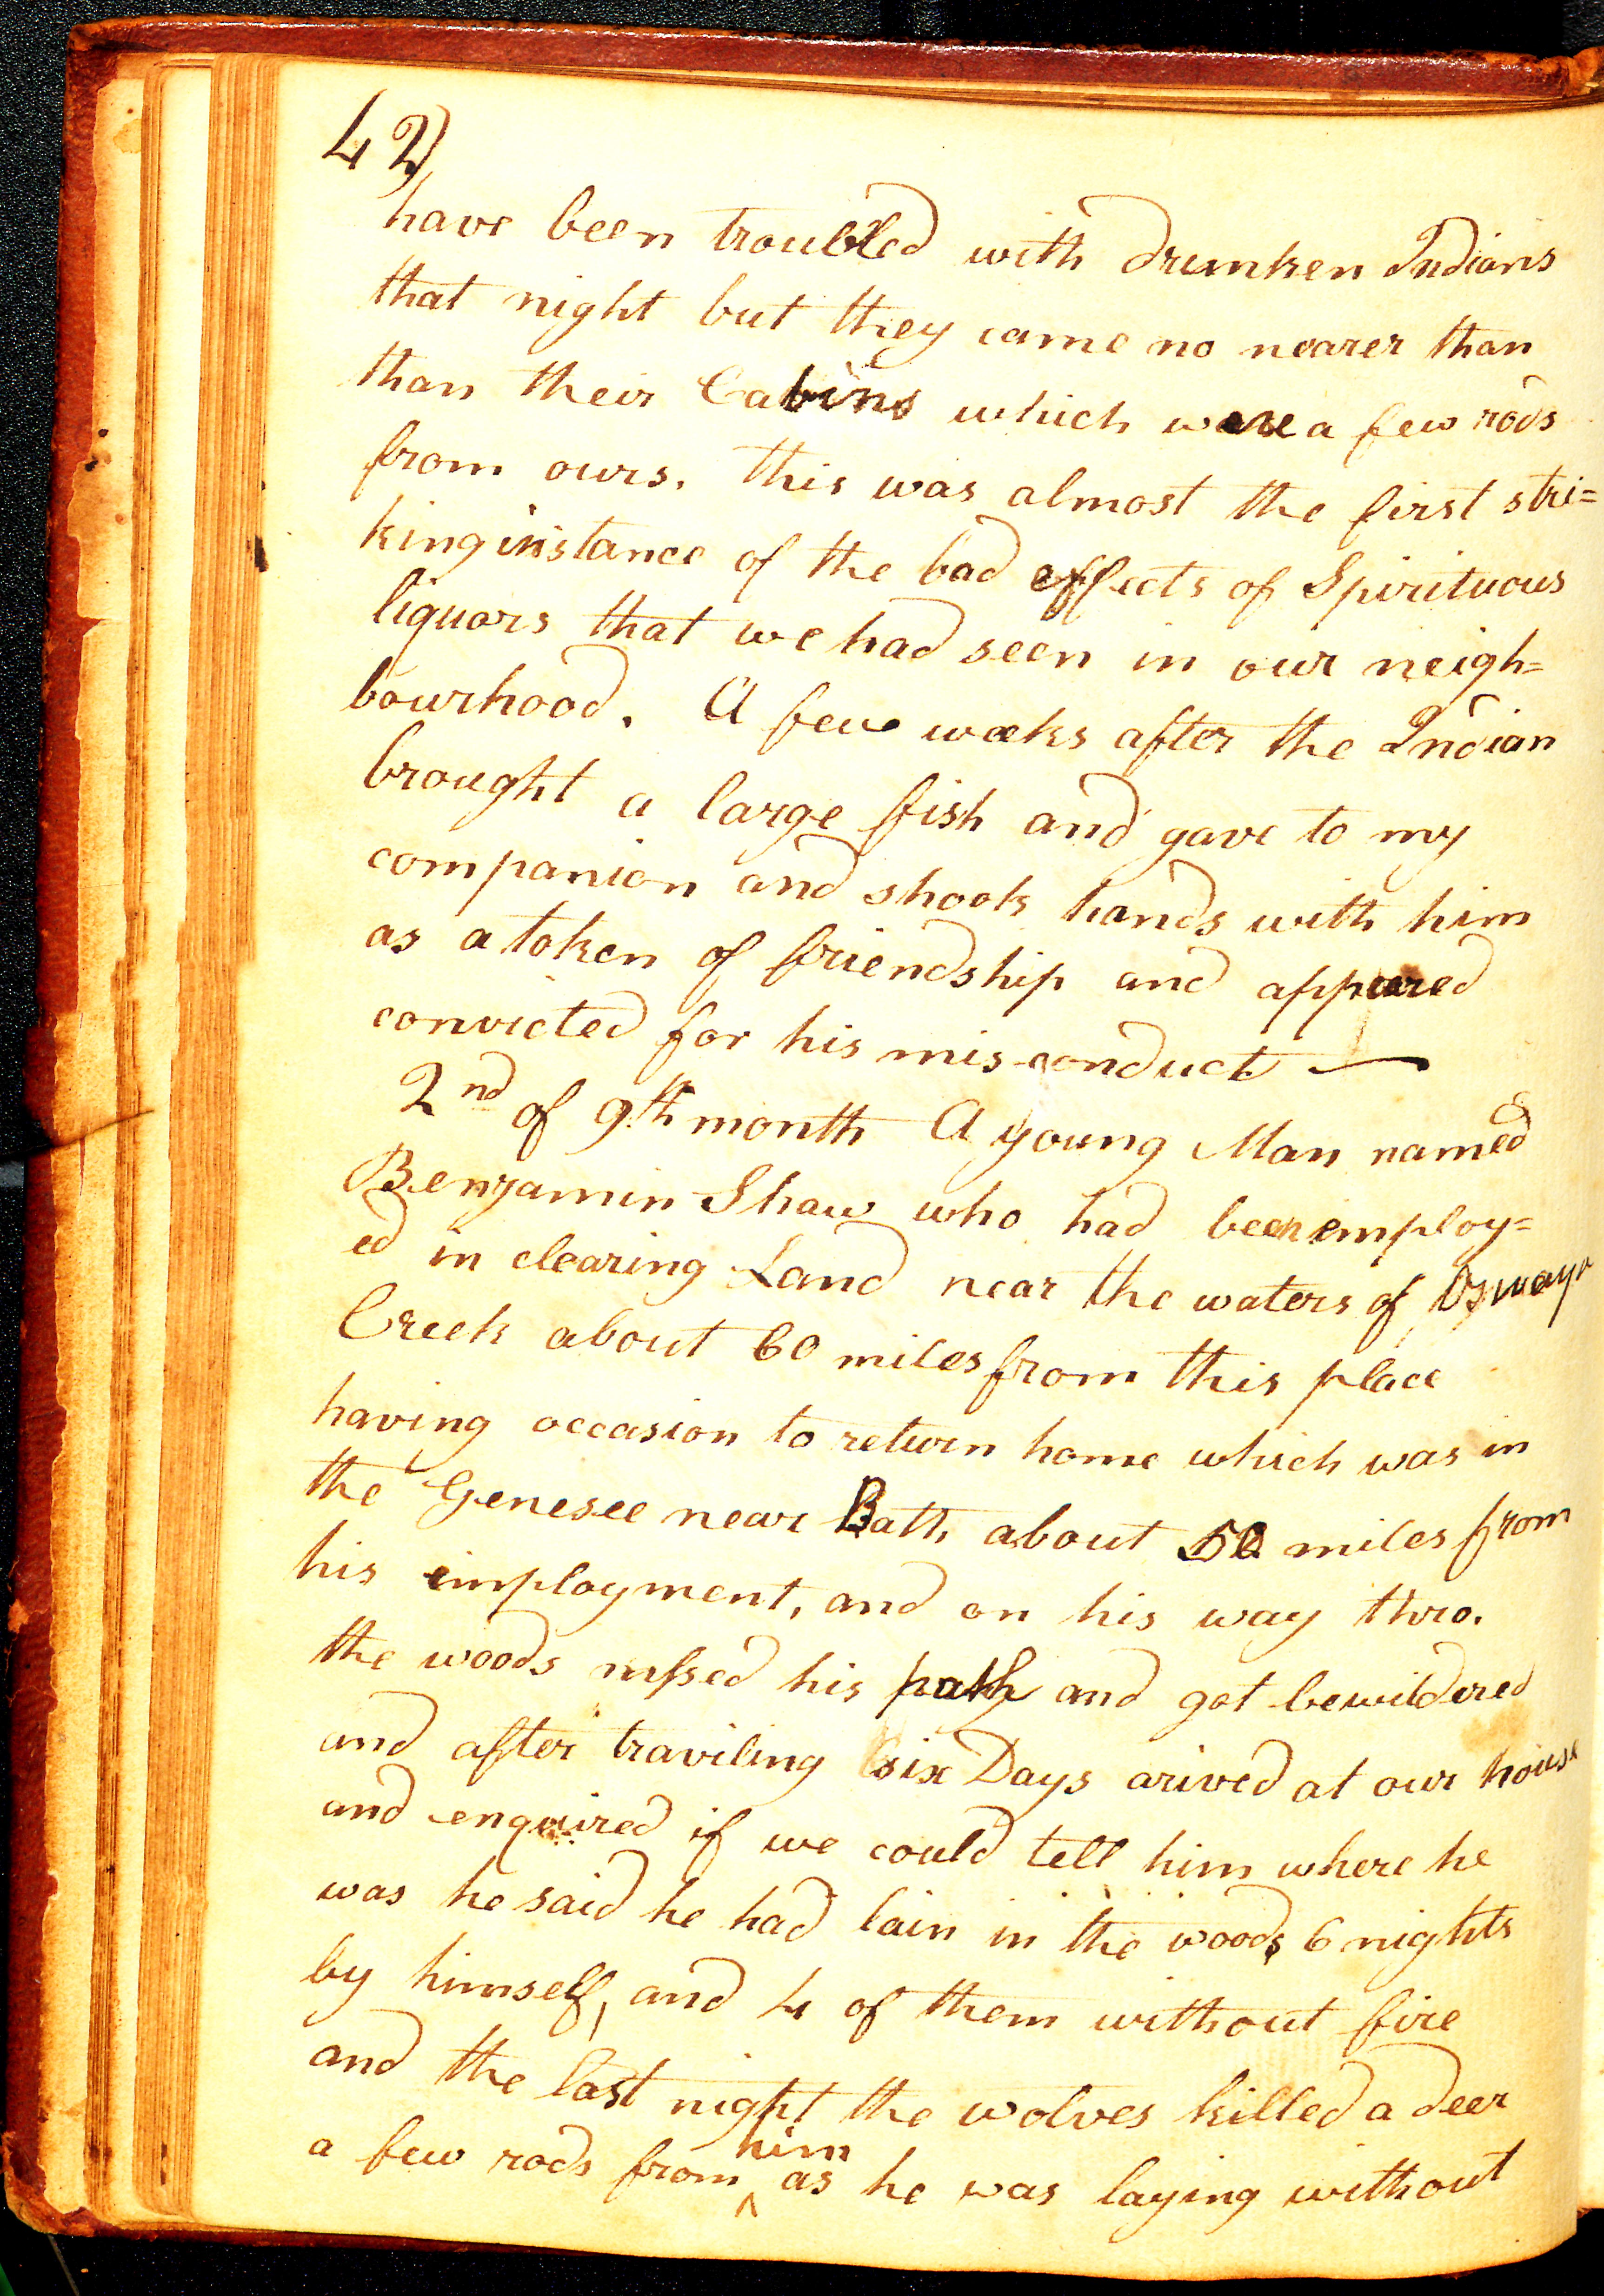 42)
have been troubled with drunken Indians
that night but they came no nearer than
than their Cabins which were a few rods
from ours. this was almost the first stri=
king instance of the bad effects of Spirituous
liquors that we had seen in our neigh=
bourhood. A few weeks after the Indian
brought a large fish and gave to my
companion and shook hands with him
as a token of friendship and appeared
convicted for his misconduct —
2nd of 9th month A young Man named
Benjamin Shaw who had been employ=
ed in clearing Land near the waters of Oswaya
Creek about 60 miles from this place
having occasion to return home which was in
the Genesee near Bath about 50 miles from
his employment, and on his way thro.
the woods missed his path and got bewildered
and after traviling six Days arived at our house
and enquired if we could tell him where he
was he said he had lain in the woods 6 nights
by himself, and 4 of them without fire
and the last night the wolves killed a deer
a few rods from ^him as he was laying without